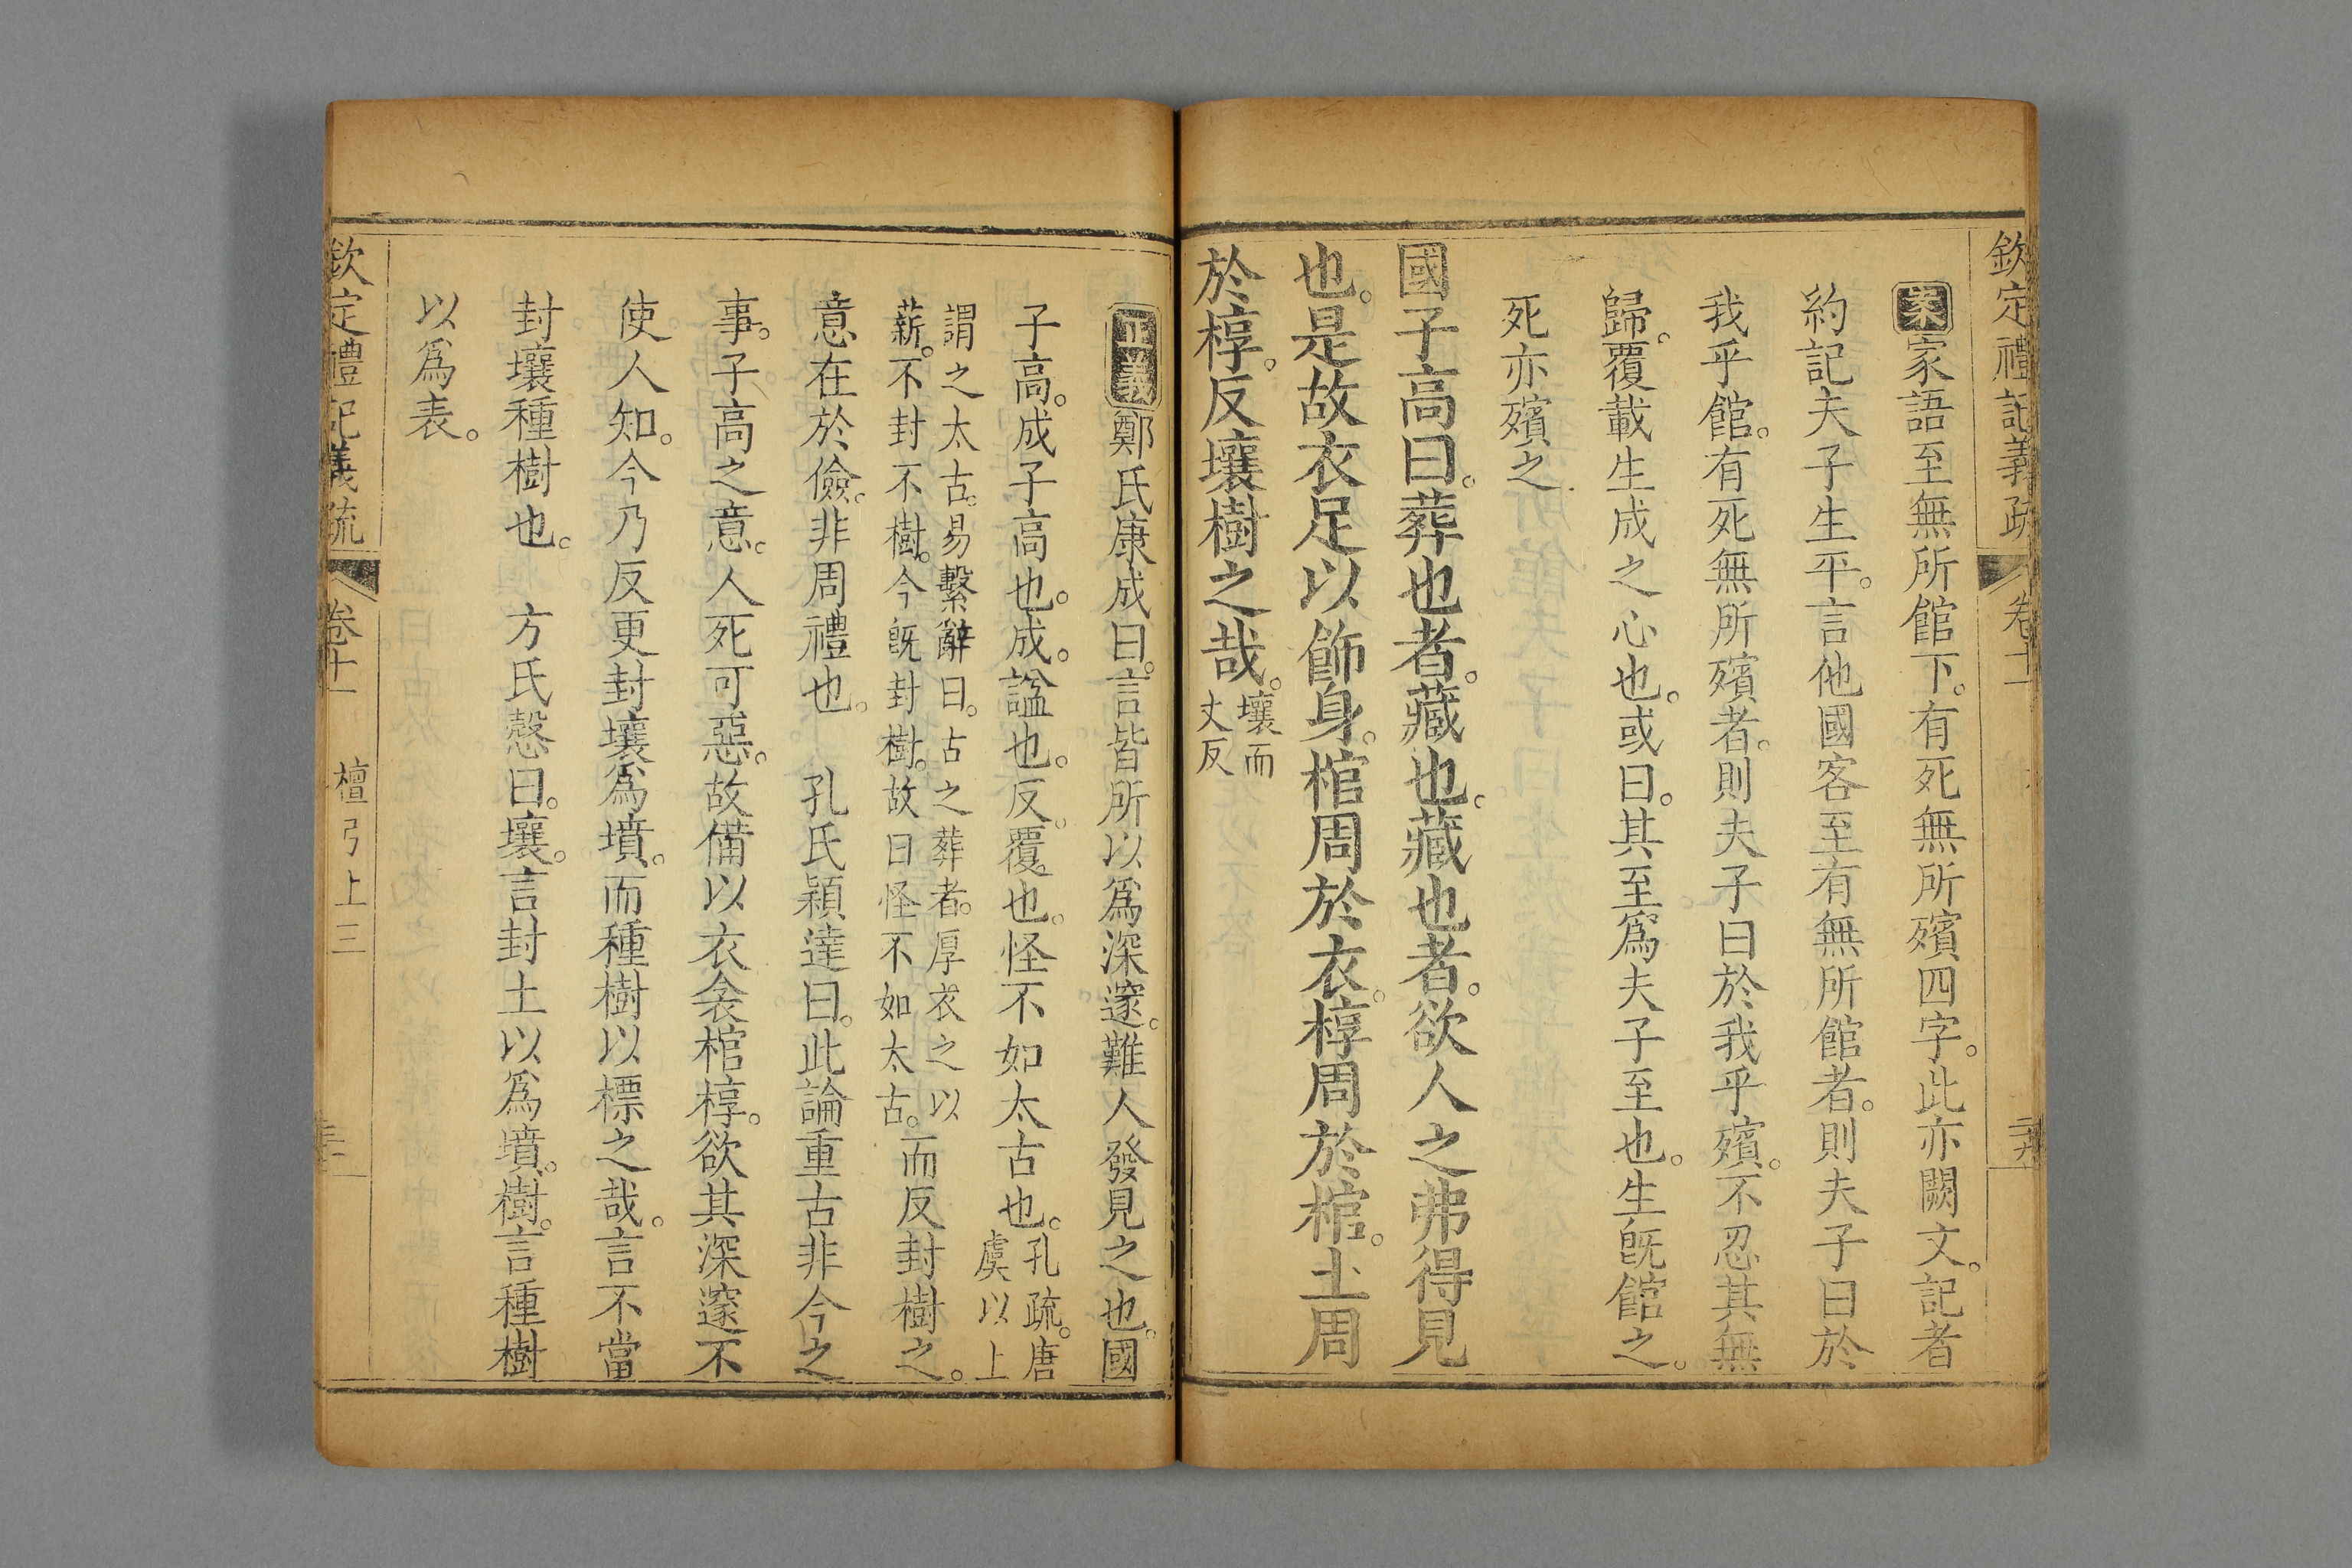 欽定禮記義疏 卷十一
案家語至無所館下。有死無所殯四字。此亦闕文。記者
約記夫子生平。言他國客至有無所館者。則夫子曰於
我乎館。有死無所殯者。則夫子曰於我乎殯。不忍其無
歸。覆載生成之心也。或曰。其至爲夫子至也。生旣館之。
死亦殯之
國子高曰。葬也者。藏也。藏也者。欲人之弗得見
也。是故衣足以飾身。棺周於衣。椁周於棺。土周
於椁。反壤樹之哉。壤而
丈反
正義鄭氏康成曰。言皆所以爲深邃。難人發見之也。國
子高。成子高也。成。諡也。反。覆也。怪不如太古也。孔疏。唐
虞以上
謂之太古。易繫辭曰。古之葬者。厚衣之以
薪。不封不樹。今旣封樹。故曰怪不如太古。而反封樹之。
意在於儉。非周禮也。 孔氏穎達曰。此論重古非今之
事。子高之意。人死可惡。故備以衣衾棺椁。欲其深邃不
使人知。今乃反更封壤爲墳。而種樹以標之哉。言不當
封壤種樹也。 方氏慤曰。壤。言封土以爲墳。樹。言種樹
以爲表。
欽定禮記義疏 卷十一 檀弓上三